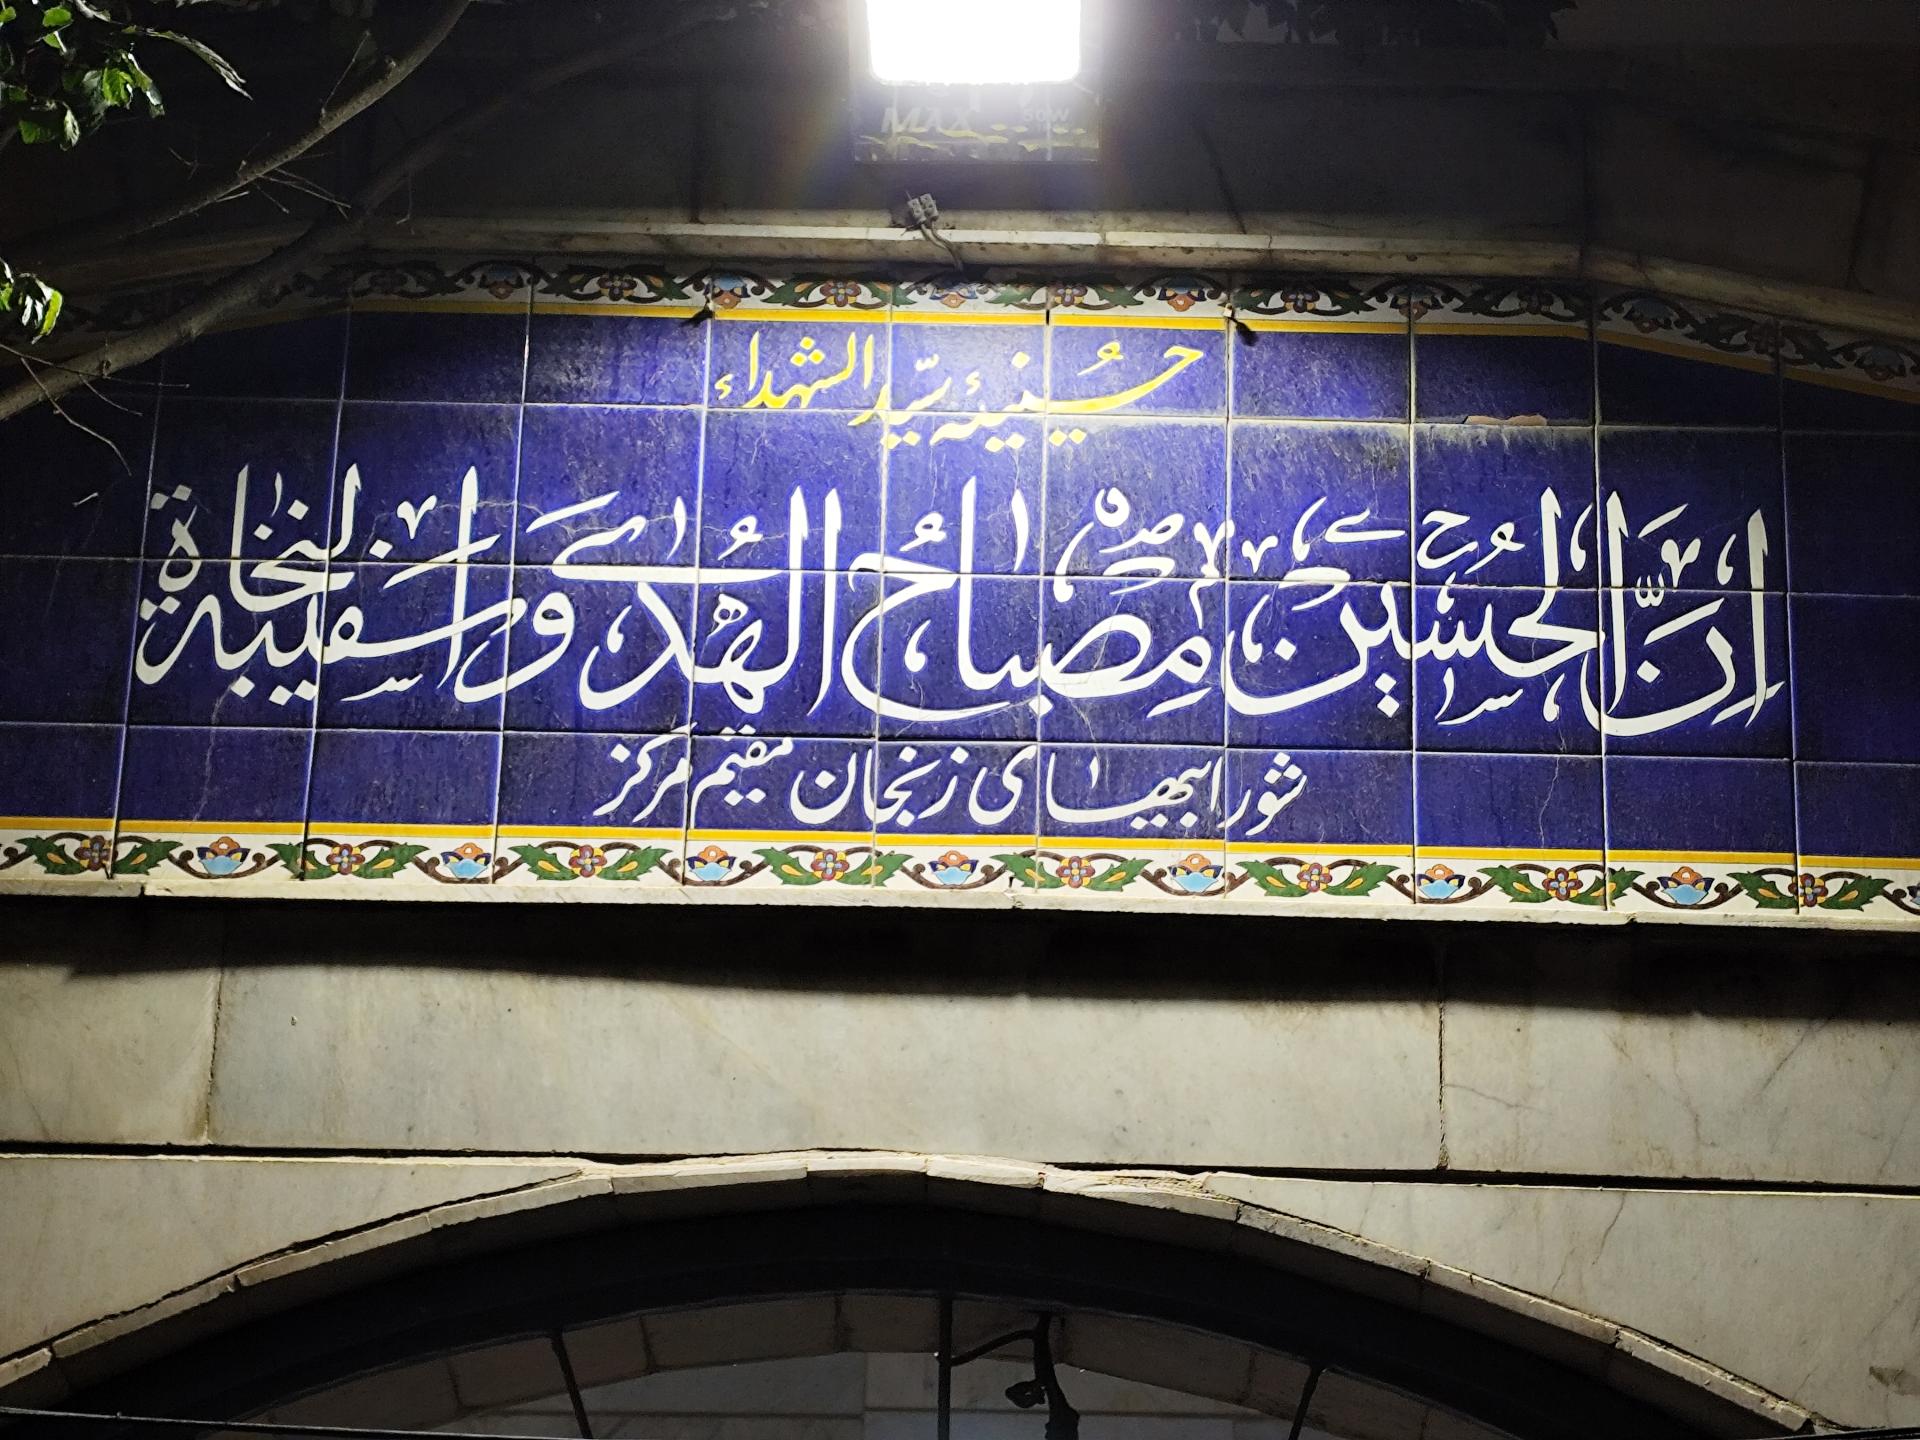 MAX 50W
حسینیهٔ سیّد الشهداء
اِنَّ الحُسین مِصباحُ الهُدی وَ سَفینة النجاة
شورابیهای زنجان مقیم مرکز